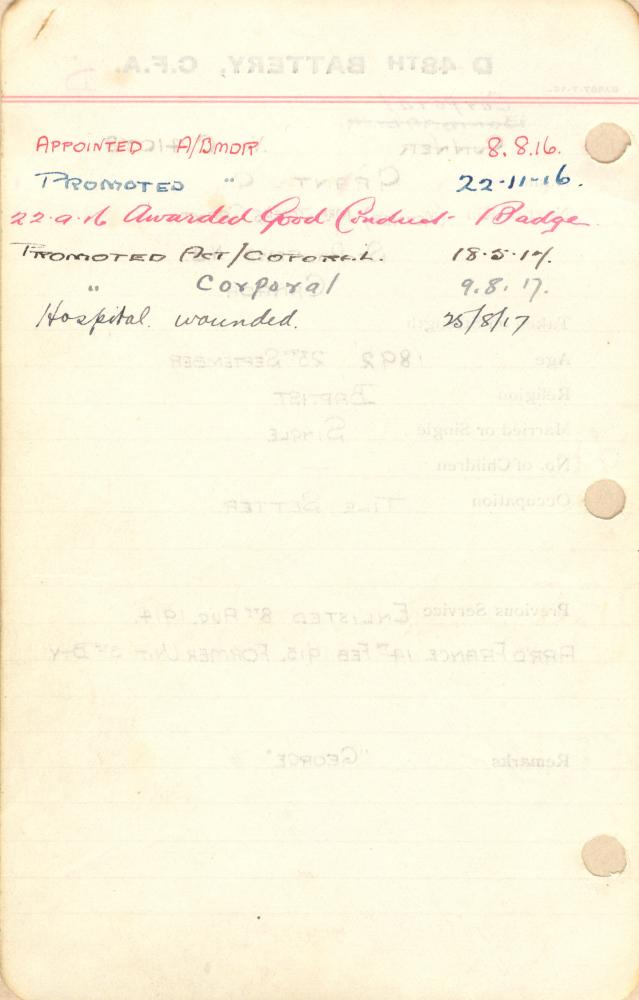 APPOINTED A/BMDR 8.8.16.
PROMOTED " 22-11-16.
22.9.16 Awarded Good Conduct Badge
PROMOTED ACT/COPORAL. 18.5.17.
" Corporal 9.8.17.
Hospital. wounded. 25/8/17